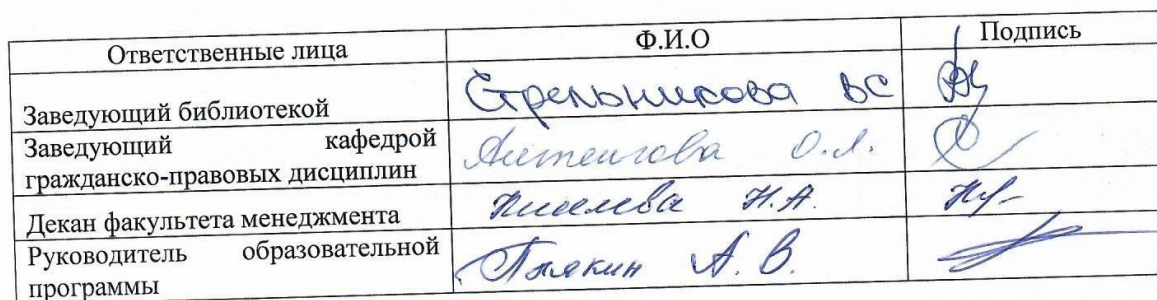 Ответственные лица Ф.И.О Подпись
Заведующий библиотекой Стрельникова ВС
Заведующий кафедрой
гражданско-правовых дисциплин О.Л.
Декан факультета менеджмента Н.А.
Руководитель образовательной
программы А.В.